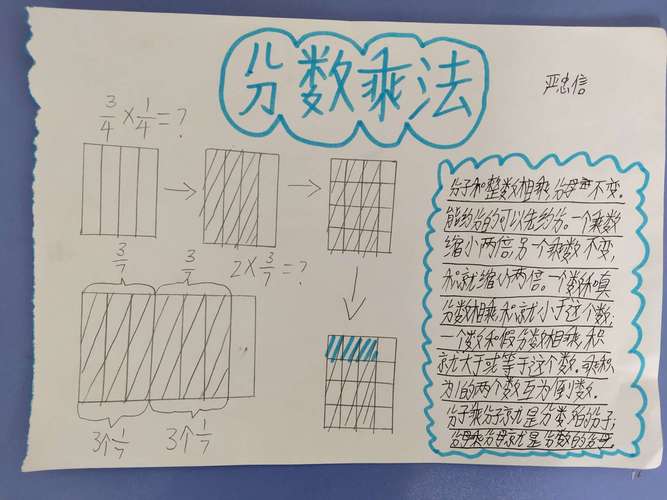 分数乘法
严忠信
3/4 × 1/4 = ?
3/7 3/7
2 × 3/7 = ?
3个1/7 3个1/7
分子和整数相乘,分母不变。
能约分的可以先约分。一个乘数
缩小两倍,另一个乘数不变,
积就缩小两倍。一个数和真
分数相乘,积就小于这个数,
一个数和假分数相乘,积
就大于或等于这个数。乘积
为1的两个数互为倒数。
分子乘分子就是分数的分子;
分母乘分母就是分数的分母。